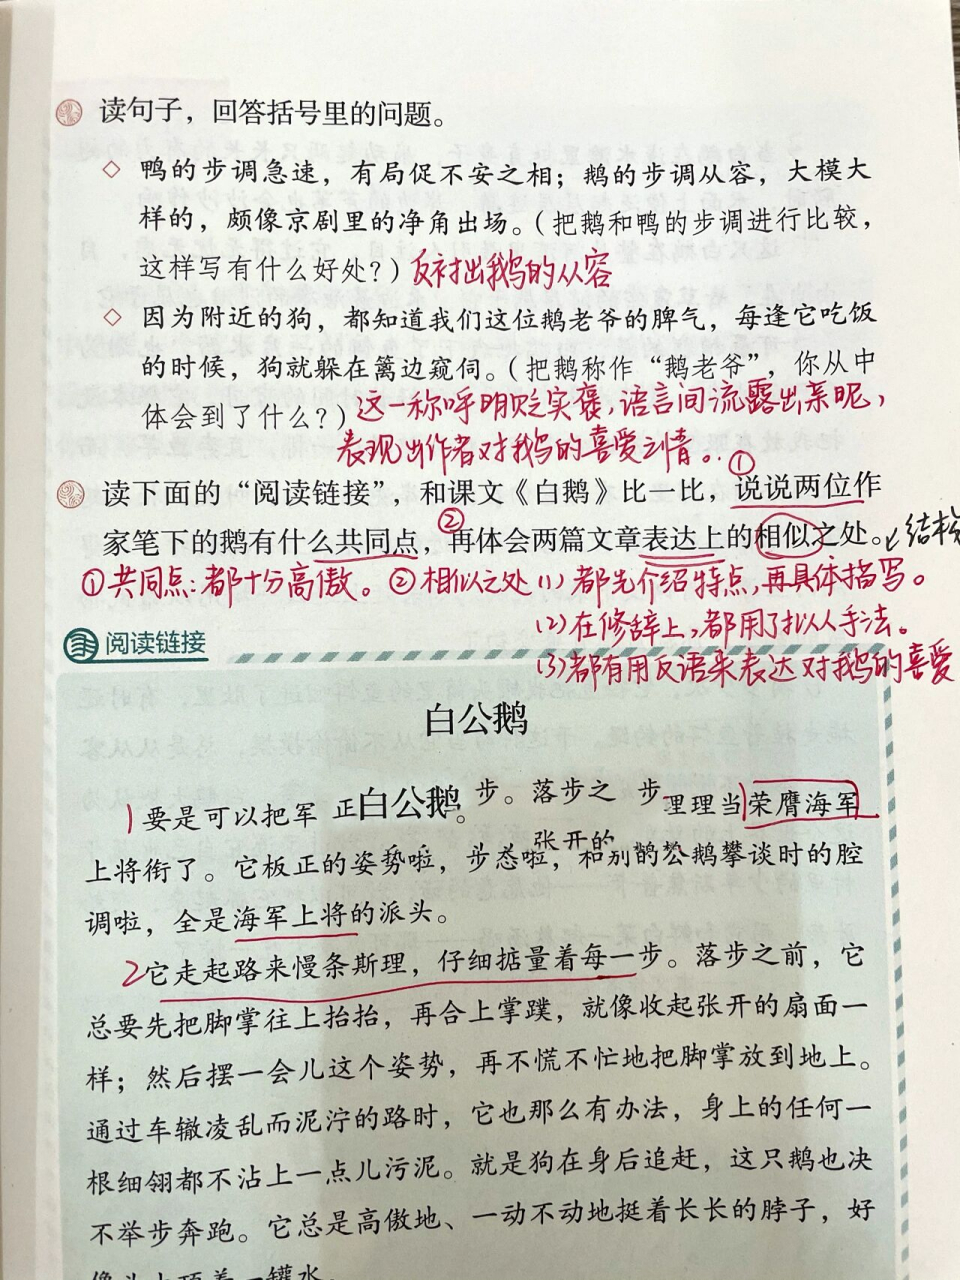 读句子，回答括号里的问题。
◇ 鸭的步调急速，有局促不安之相；鹅的步调从容，大模大
样的，颇像京剧里的净角出场。（把鹅和鸭的步调进行比较，
这样写有什么好处？）反衬出鹅的从容
◇ 因为附近的狗，都知道我们这位鹅老爷的脾气，每逢它吃饭
的时候，狗就躲在篱边窥伺。（把鹅称作“鹅老爷”，你从中
体会到了什么？）这一称呼明贬实褒，语言间流露出亲昵，
表现出作者对鹅的喜爱之情。
①
读下面的“阅读链接”，和课文《白鹅》比一比，说说两位作
②
家笔下的鹅有什么共同点，再体会两篇文章表达上的相似之处。结构
①共同点：都十分高傲。②相似之处(1)都先介绍特点，再具体描写。
(2)在修辞上，都用了拟人手法。
(3)都有用反语来表达对鹅的喜爱
阅读链接
白公鹅
1要是可以把军 正白公鹅。步。落步之 步里理当荣膺海军
张开的
上将衔了。它板正的姿势啦，步态啦，和别的公鹅攀谈时的腔
调啦，全是海军上将的派头。
2它走起路来慢条斯理，仔细掂量着每一步。落步之前，它
总要先把脚掌往上抬抬，再合上掌蹼，就像收起张开的扇面一
样；然后摆一会儿这个姿势，再不慌不忙地把脚掌放到地上。
通过车辙凌乱而泥泞的路时，它也那么有办法，身上的任何一
根细翎都不沾上一点儿污泥。就是狗在身后追赶，这只鹅也决
不举步奔跑。它总是高傲地、一动不动地挺着长长的脖子，好
像头上顶着一罐水。